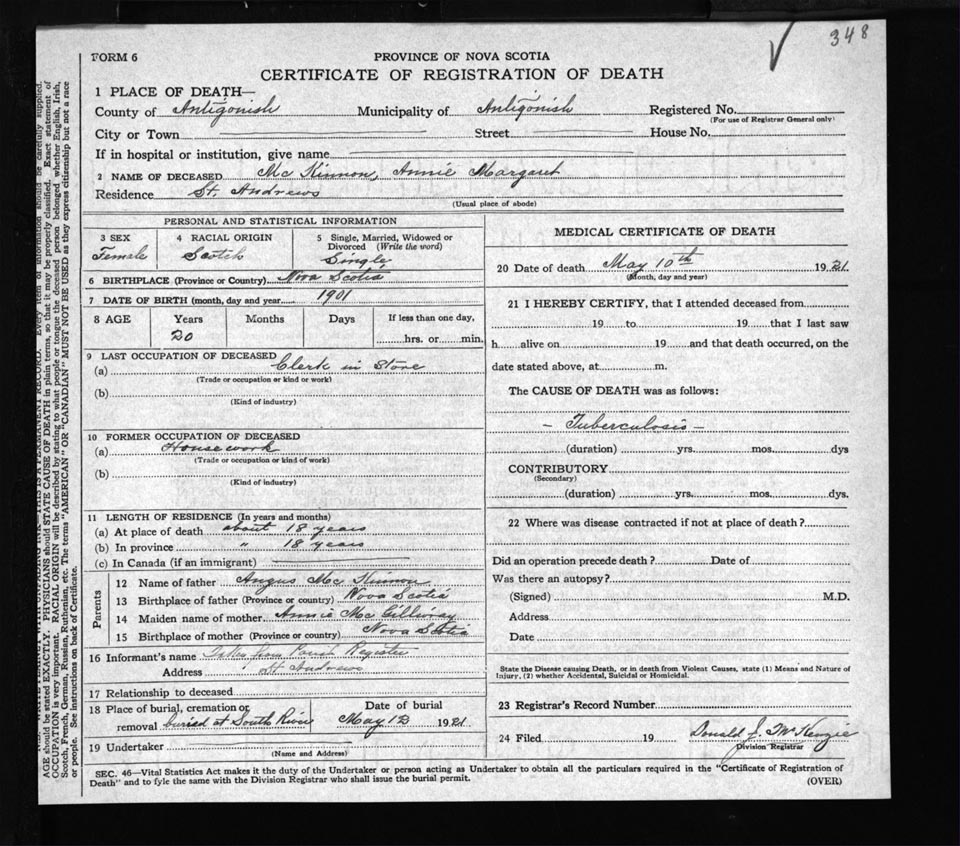 348
FORM 6
PROVINCE OF NOVA SCOTIA
CERTIFICATE OF REGISTRATION OF DEATH
1 PLACE OF DEATH—
County of Antigonish Municipality of Antigonish Registered No.
(For use of Registrar General only)
City or Town Street House No.
If in hospital or institution, give name
2 NAME OF DECEASED Mc Kinnon, Annie Margaret
Residence St. Andrews
(Usual place of abode)
PERSONAL AND STATISTICAL INFORMATION
3 SEX 4 RACIAL ORIGIN 5 Single, Married, Widowed or
Divorced (Write the word)
Female Scotch Single
6 BIRTHPLACE (Province or Country) Nova Scotia
7 DATE OF BIRTH (month, day and year) 1901
8 AGE Years Months Days If less than one day,
20 hrs. or min.
9 LAST OCCUPATION OF DECEASED
(a) Clerk in Store
(Trade or occupation or kind or work)
(b)
(Kind of industry)
10 FORMER OCCUPATION OF DECEASED
(a) Housework
(Trade or occupation or kind of work)
(b)
(Kind of industry)
11 LENGTH OF RESIDENCE (In years and months)
(a) At place of death about 18 years
(b) In province " 18 years
(c) In Canada (if an immigrant)
Parents
12 Name of father Angus Mc Kinnon
13 Birthplace of father (Province or country) Nova Scotia
14 Maiden name of mother Annie Mc Gillivray
15 Birthplace of mother (Province or country) Nova Scotia
16 Informant's name Taken from Parish Register
Address St Andrews
17 Relationship to deceased
18 Place of burial, cremation or removal buried at South River
Date of burial May 12 1921
19 Undertaker
(Name and Address)
MEDICAL CERTIFICATE OF DEATH
20 Date of death May 10th 1921
(Month, day and year)
21 I HEREBY CERTIFY, that I attended deceased from
19 to 19 that I last saw
h alive on 19 and that death occurred, on the
date stated above, at m.
The CAUSE OF DEATH was as follows:
- Tuberculosis -
(duration) yrs. mos. dys
CONTRIBUTORY
(Secondary)
(duration) yrs. mos. dys.
22 Where was disease contracted if not at place of death?
Did an operation precede death? Date of
Was there an autopsy?
(Signed) M.D.
Address
Date
State the Disease causing Death, or in death from Violent Causes, state (1) Means and Nature of
Injury, (2) whether Accidental, Suicidal or Homicidal.
23 Registrar's Record Number
24 Filed 19 Donald J. McKenzie
Division Registrar
SEC. 46—Vital Statistics Act makes it the duty of the Undertaker or person acting as Undertaker to obtain all the particulars required in the "Certificate of Registration of
Death" and to fyle the same with the Division Registrar who shall issue the burial permit.
(OVER)
AGE should be stated EXACTLY. PHYSICIANS should STATE CAUSE OF DEATH in plain terms, so that it may be properly classified. Exact statement of
OCCUPATION is very important. RACIAL ORIGIN will be described by stating to what people or tongue the deceased person belonged whether English, Irish,
Scotch, French, German, Russian, Ruthenian, etc. The terms "AMERICAN" OR "CANADIAN" MUST NOT BE USED as they express citizenship but not a race
or people. See instructions on back of Certificate.